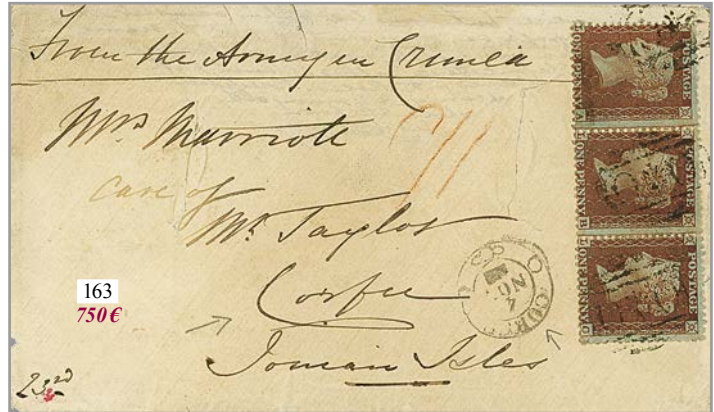 From the Army in Crimea
Mrs Marriott
care of
Mr. Taylor
Corfu
Ionian Isles
23rd
163
750 €
POSTAGE
ONE PENNY
POSTAGE
ONE PENNY
POSTAGE
ONE PENNY
CORFU
4
NO